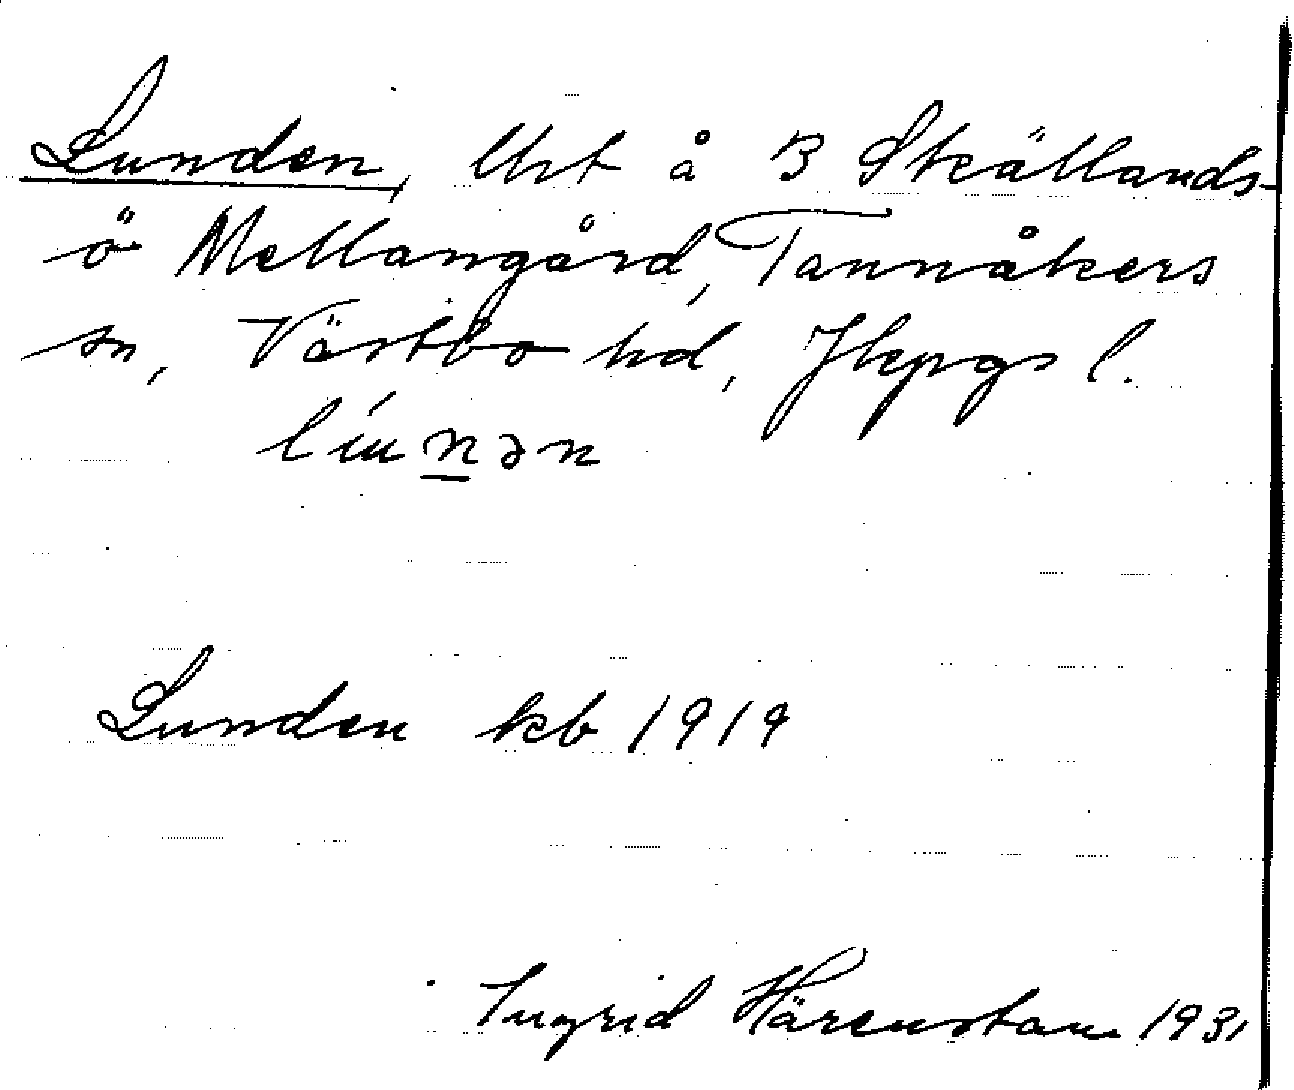 Lunden, Urt å 3 Skällands-
ö Mellangård, Tannåkers
sn, Västbo hd, Jkpgs l.
Lunden kb 1919
Ingrid Härenstam 1931